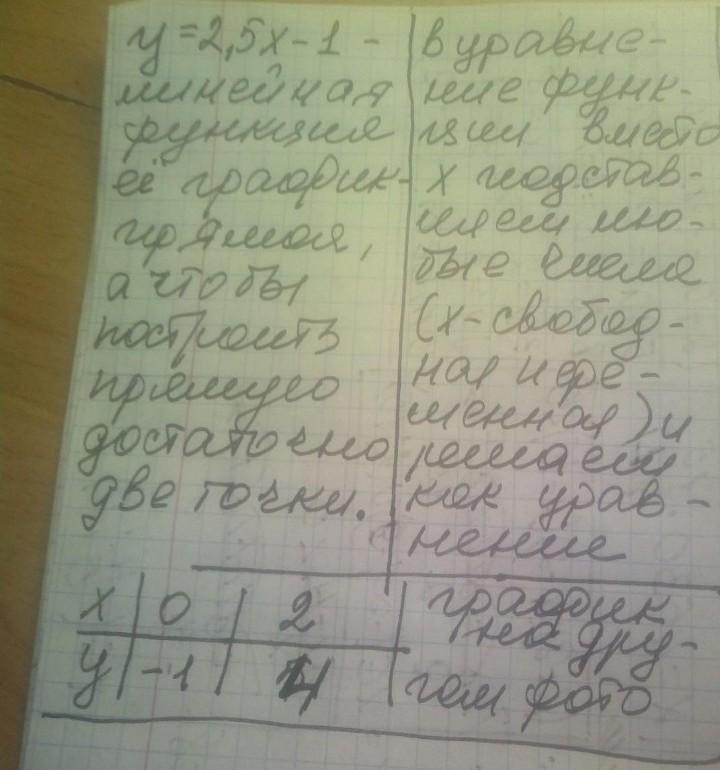 y=2,5x-1 -
линейная
функция
её график-
прямая,
а чтобы
построить
прямую
достаточно
две точки.
в уравне-
ние функ-
ции вместо
х подстав-
ляем лю-
бые числа
(х-свобод-
ная пере-
менная) и
решаем
как урав-
нение
x | 0 | 2
y | -1 | 4
график
на дру-
гом фото